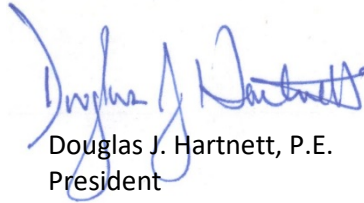 Douglas J Hartnett
Douglas J. Hartnett, P.E.
President